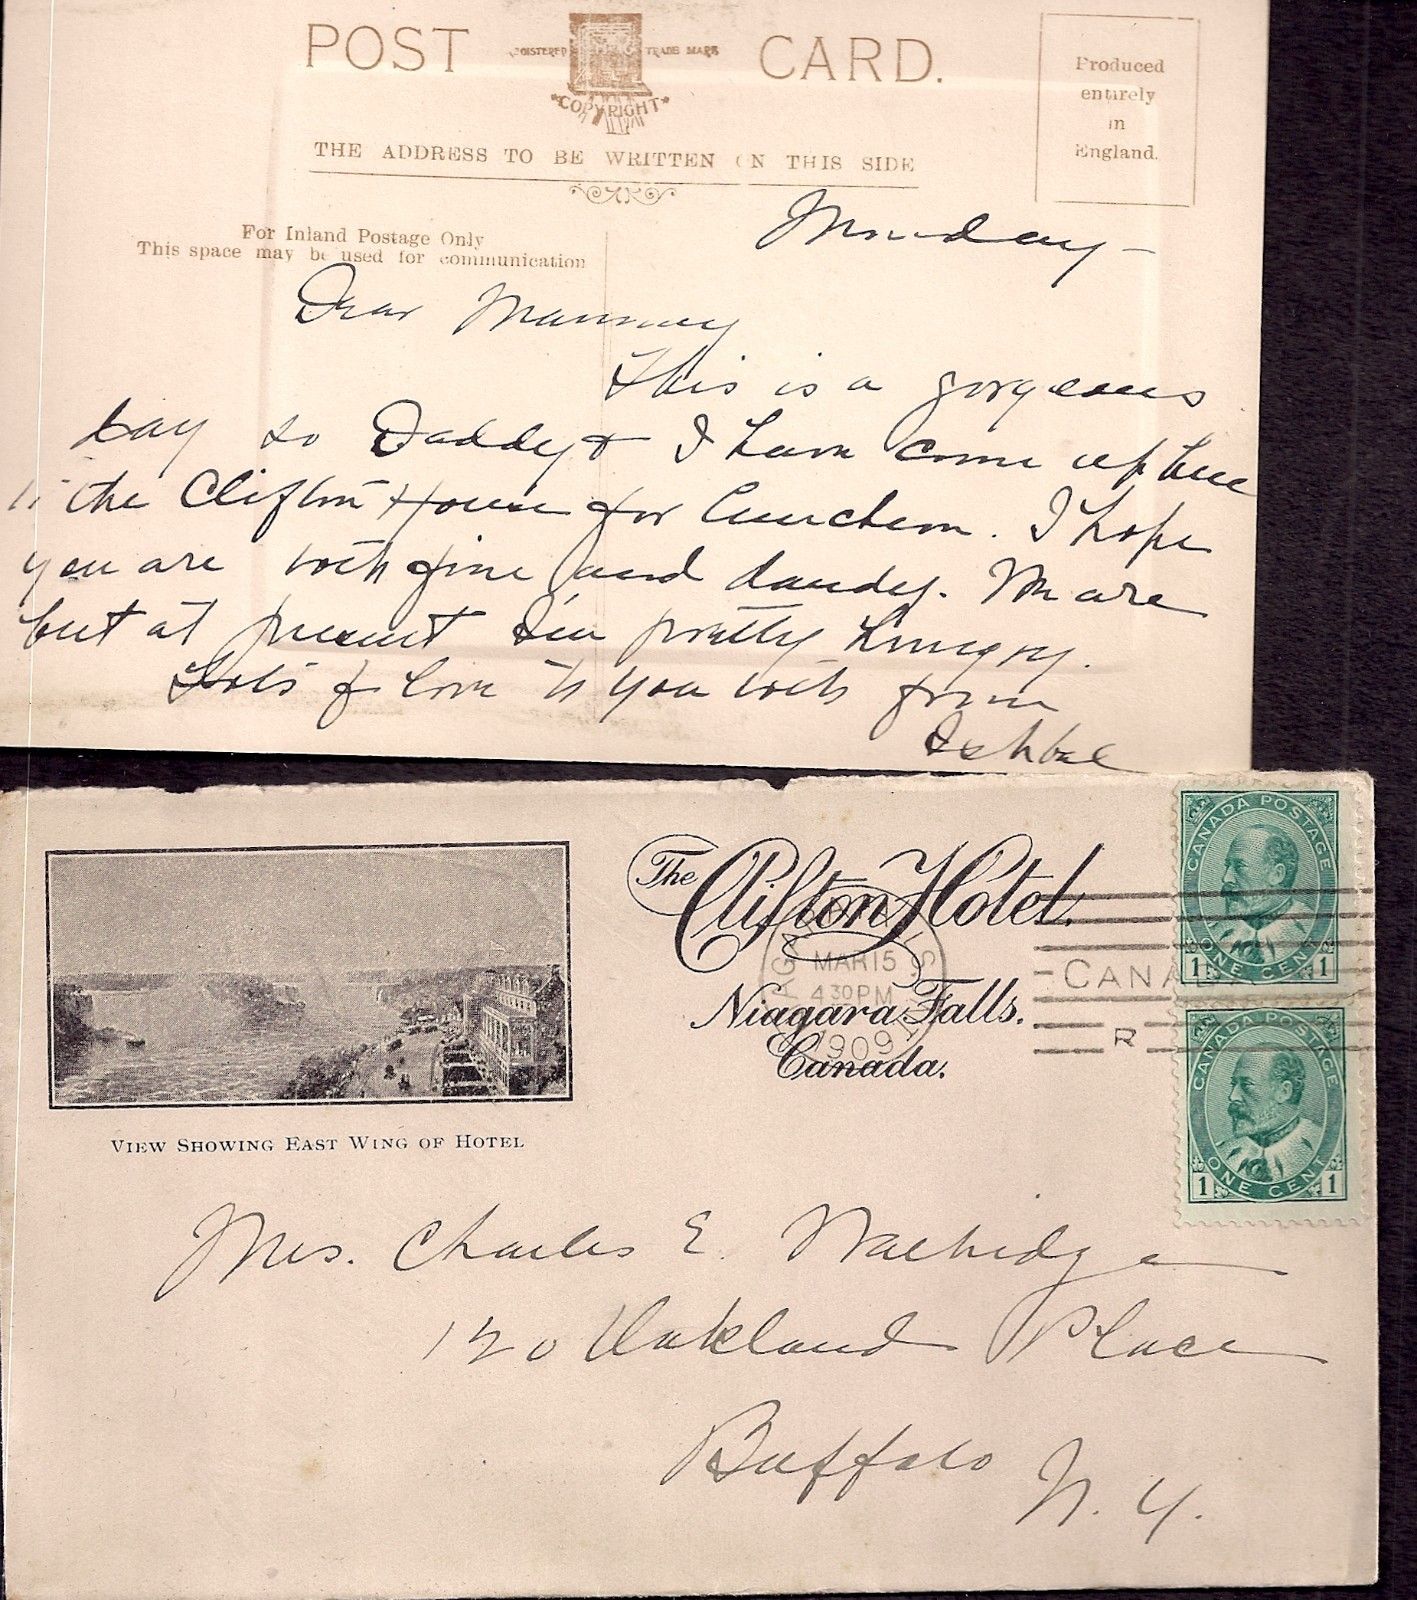 POST CARD.
REGISTERED TRADE MARK
"COPYRIGHT"
Produced
entirely
in
England.
THE ADDRESS TO BE WRITTEN ON THIS SIDE
For Inland Postage Only
This space may be used for communication
Monday —
Dear Mammy
This is a gorgeous
day so Daddy & I have come up here
to the Clifton House for luncheon. I hope
you are both fine and dandy. We are
but at present I'm pretty hungry.
Lots of love to you both from
Ishbel
The Clifton Hotel.
Niagara Falls.
Canada.
MAR 15
4 30 PM
1909
CANADA
R
CANADA POSTAGE
1 ONE CENT 1
CANADA POSTAGE
1 ONE CENT 1
VIEW SHOWING EAST WING OF HOTEL
Mrs. Charles E. Walbridge
120 Oakland Place
Buffalo
N. Y.